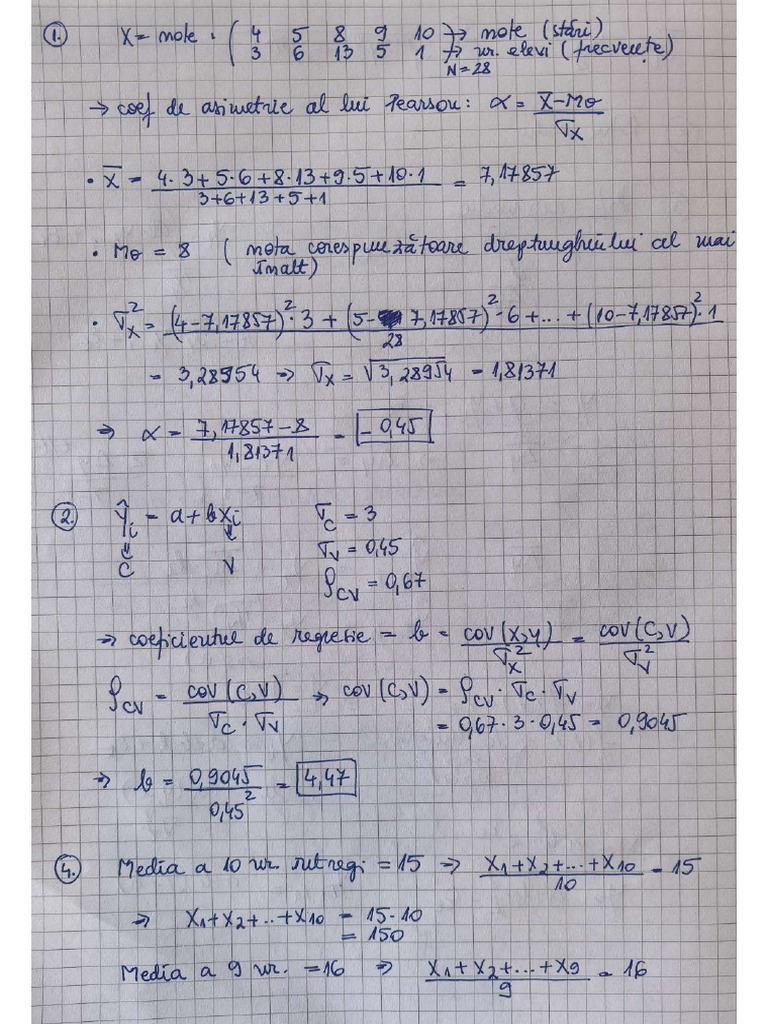 1. X = note : ( 4 5 8 9 10 → note (stări)
3 6 13 5 1 → nr. elevi (frecvențe)
N = 28
→ coef de asimetrie al lui Pearson: α = (X̄ - Mo) / σx
• X̄ = (4·3 + 5·6 + 8·13 + 9·5 + 10·1) / (3+6+13+5+1) = 7,17857
• Mo = 8 ( nota corespunzătoare dreptunghiului cel mai
înalt)
• σx² = ((4-7,17857)²·3 + (5-7,17857)²·6 + ... + (10-7,17857)²·1) / 28
= 3,28954 ⇒ σx = √3,28954 = 1,81371
⇒ α = (7,17857 - 8) / 1,81371 = -0,45
2. ŷi = a + bxi σC = 3
C V σV = 0,45
ρCV = 0,67
⇒ coeficientul de regresie = b = cov(x,y) / σx² = cov(C,V) / σV²
ρCV = cov(C,V) / (σC · σV) ⇒ cov(C,V) = ρCV · σC · σV
= 0,67 · 3 · 0,45 = 0,9045
⇒ b = 0,9045 / 0,45² = 4,47
4. Media a 10 nr. întregi = 15 ⇒ (x1 + x2 + ... + x10) / 10 = 15
⇒ x1 + x2 + .. + x10 = 15·10
= 150
Media a 9 nr. = 16 ⇒ (x1 + x2 + ... + x9) / 9 = 16